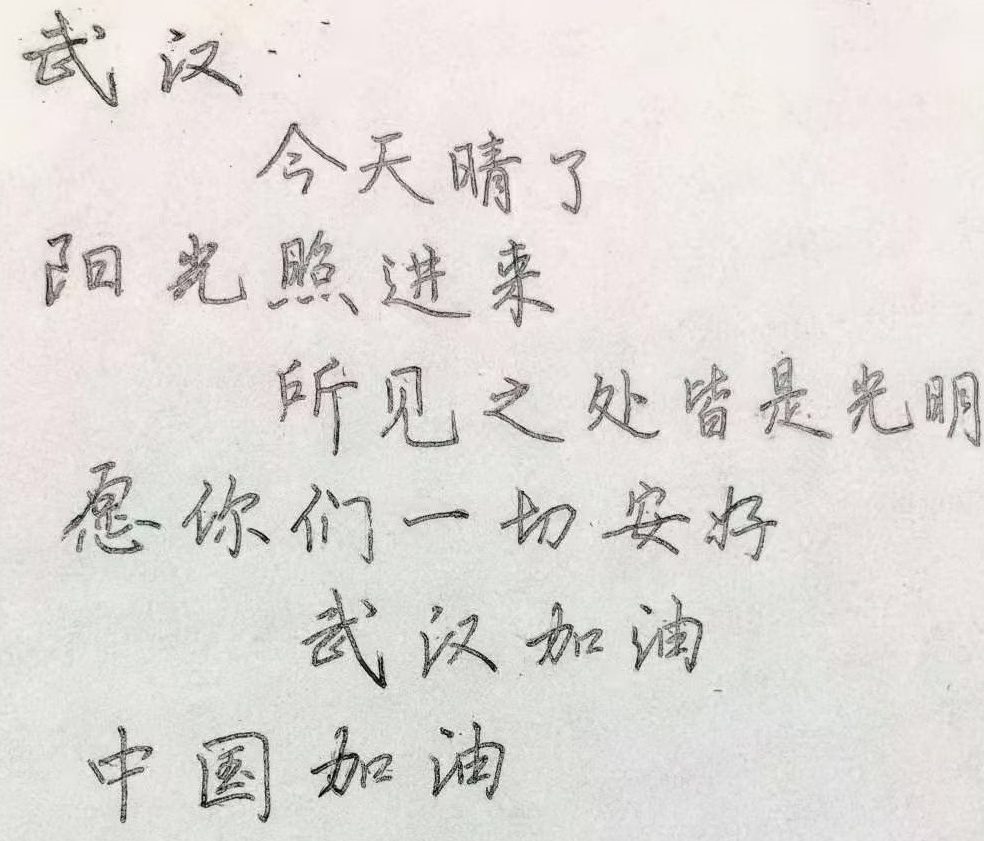 武汉
今天晴了
阳光照进来
所见之处皆是光明
愿你们一切安好
武汉加油
中国加油